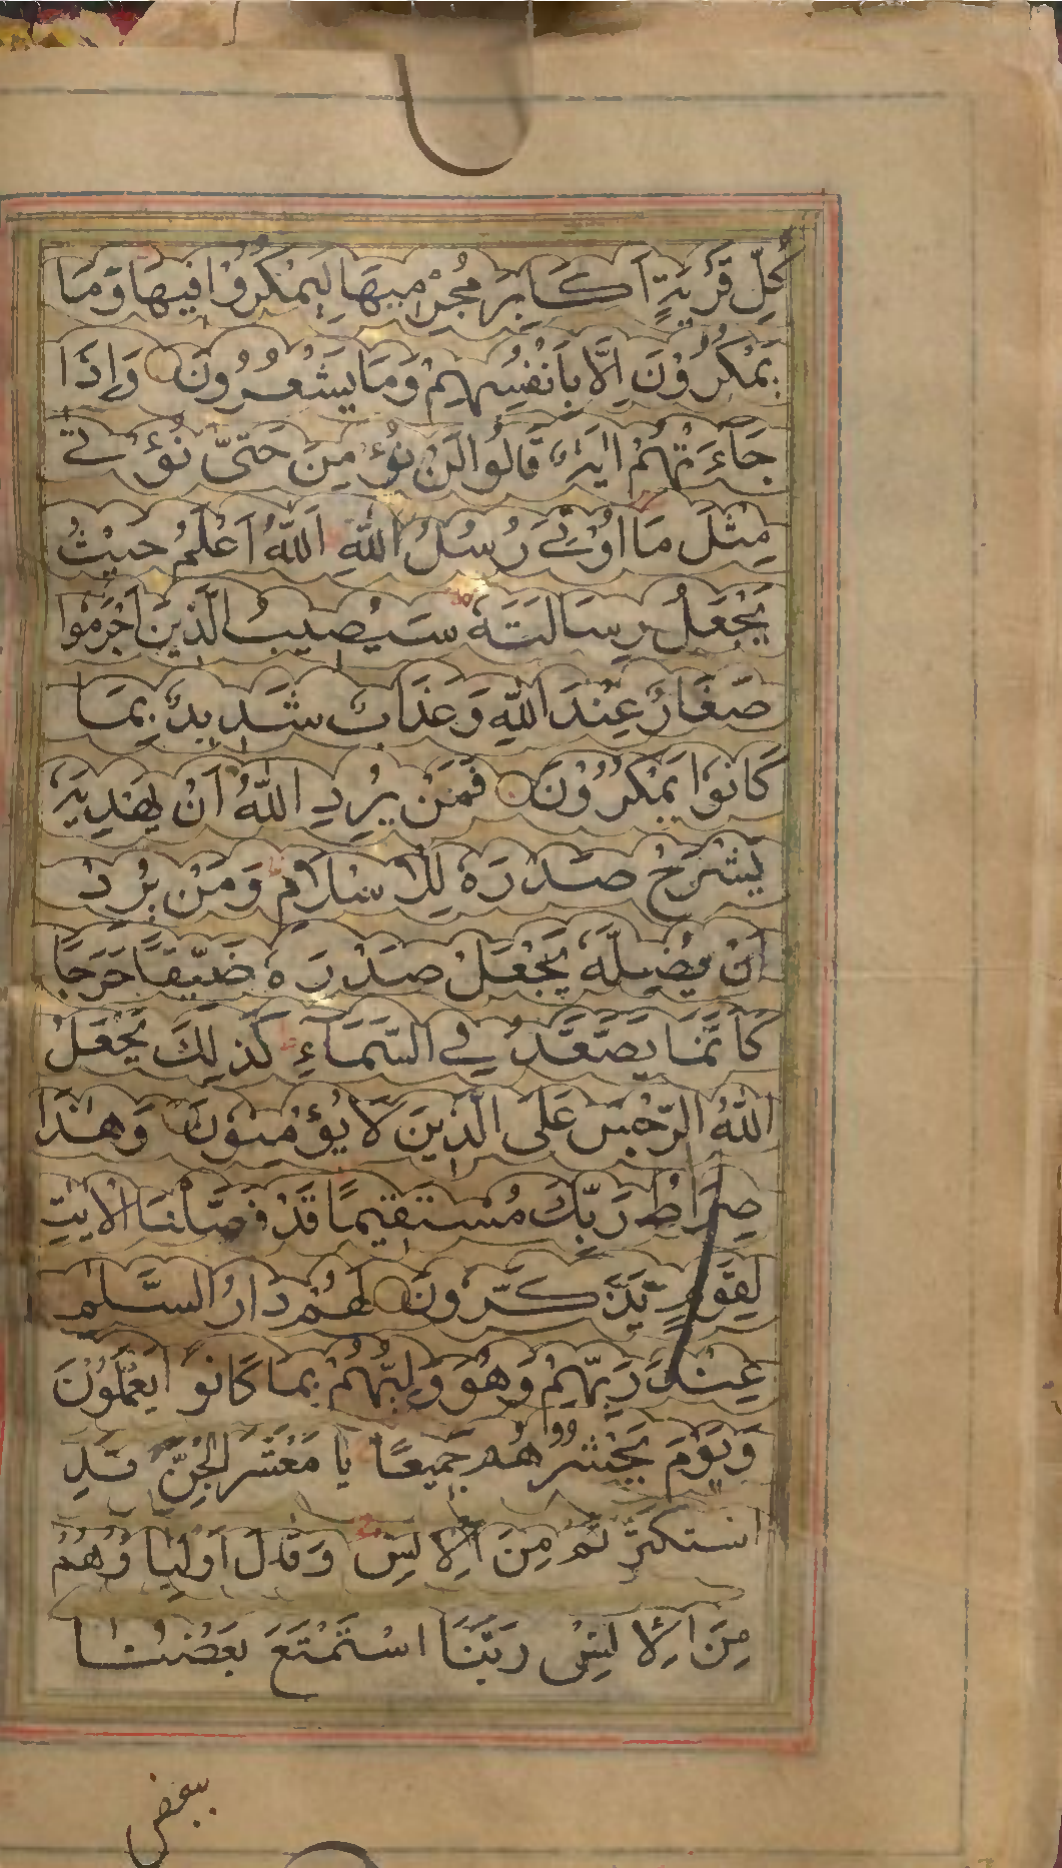 كُلِّ قَرْيَةٍ اَكَابِرَ مُجْرِمِيهَا لِيَمْكُرُوْا فِيهَا وَمَا
يَمْكُرُوْنَ اِلَّا بِاَنْفُسِهِمْ وَمَا يَشْعُرُونَ وَاِذَا
جَآءَتْهُمْ اٰيَةٌ قَالُوا لَنْ نُؤْمِنَ حَتّٰى نُؤْتٰى
مِثْلَ مَا اُوْتِىَ رُسُلُ اللّٰهِ اَللّٰهُ اَعْلَمُ حَيْثُ
يَجْعَلُ رِسَالَتَهٗ سَيُصِيبُ الَّذِينَ اَجْرَمُوا
صَغَارٌ عِنْدَ اللّٰهِ وَعَذَابٌ شَدِيدٌ بِمَا
كَانُوا يَمْكُرُوْنَ فَمَنْ يُرِدِ اللّٰهُ اَنْ يَهْدِيَهٗ
يَشْرَحْ صَدْرَهٗ لِلْاِسْلَامِ وَمَنْ يُرِدْ
اَنْ يُضِلَّهٗ يَجْعَلْ صَدْرَهٗ ضَيِّقًا حَرَجًا
كَاَنَّمَا يَصَّعَّدُ فِى السَّمَآءِ كَذٰلِكَ يَجْعَلُ
اللّٰهُ الرِّجْسَ عَلَى الَّذِينَ لَا يُؤْمِنُوْنَ وَهٰذَا
صِرَاطُ رَبِّكَ مُسْتَقِيمًا قَدْ فَصَّلْنَا الْاٰيٰتِ
لِقَوْمٍ يَذَّكَّرُونَ لَهُمْ دَارُ السَّلٰمِ
عِنْدَ رَبِّهِمْ وَهُوَ وَلِيُّهُمْ بِمَا كَانُوا يَعْمَلُوْنَ
وَيَوْمَ يَحْشُرُهُمْ جَمِيعًا يَا مَعْشَرَ الْجِنِّ قَدِ
اسْتَكْثَرْتُمْ مِنَ الْاِنْسِ وَقَالَ اَوْلِيَاؤُهُمْ
مِنَ الْاِنْسِ رَبَّنَا اسْتَمْتَعَ بَعْضُنَا
ببعض